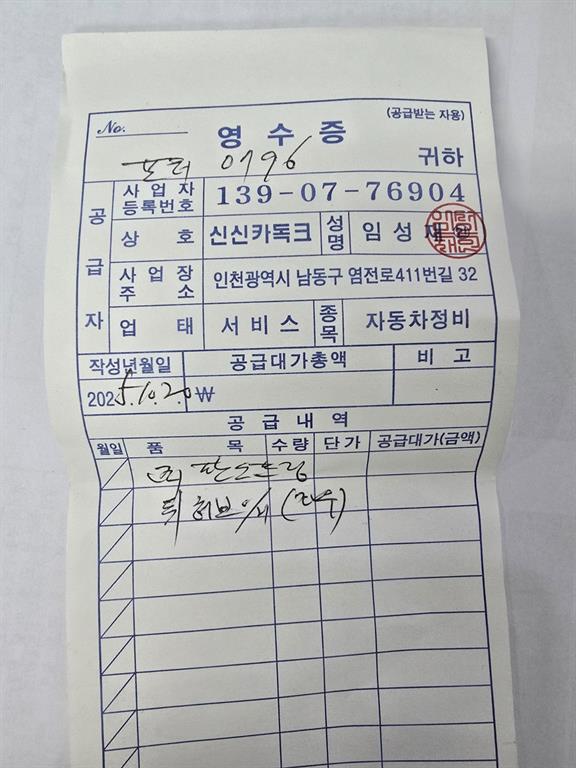 (공급받는 자용)
No.
영 수 증
포터 0796 귀하
공급자
사업자등록번호 139-07-76904
상 호 신신카독크 성명 임성재 ㊞
사업장주소 인천광역시 남동구 염전로411번길 32
업 태 서비스 종목 자동차정비
작성년월일 공급대가총액 비 고
2025.10.20 ₩
공 급 내 역
월일 품 목 수량 단가 공급대가(금액)
판스프링
뒤 허브